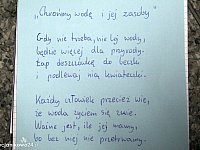 „Chrońmy wodę i jej zasoby”
Gdy nie trzeba, nie lej wody,
będzie więcej dla przyrody.
Łap deszczówkę do beczki
i podlewaj nią kwiateczki.
Każdy człowiek przecież wie,
że woda życiem się zwie.
Ważne jest, ile jej mamy,
bo bez niej nie przetrwamy.